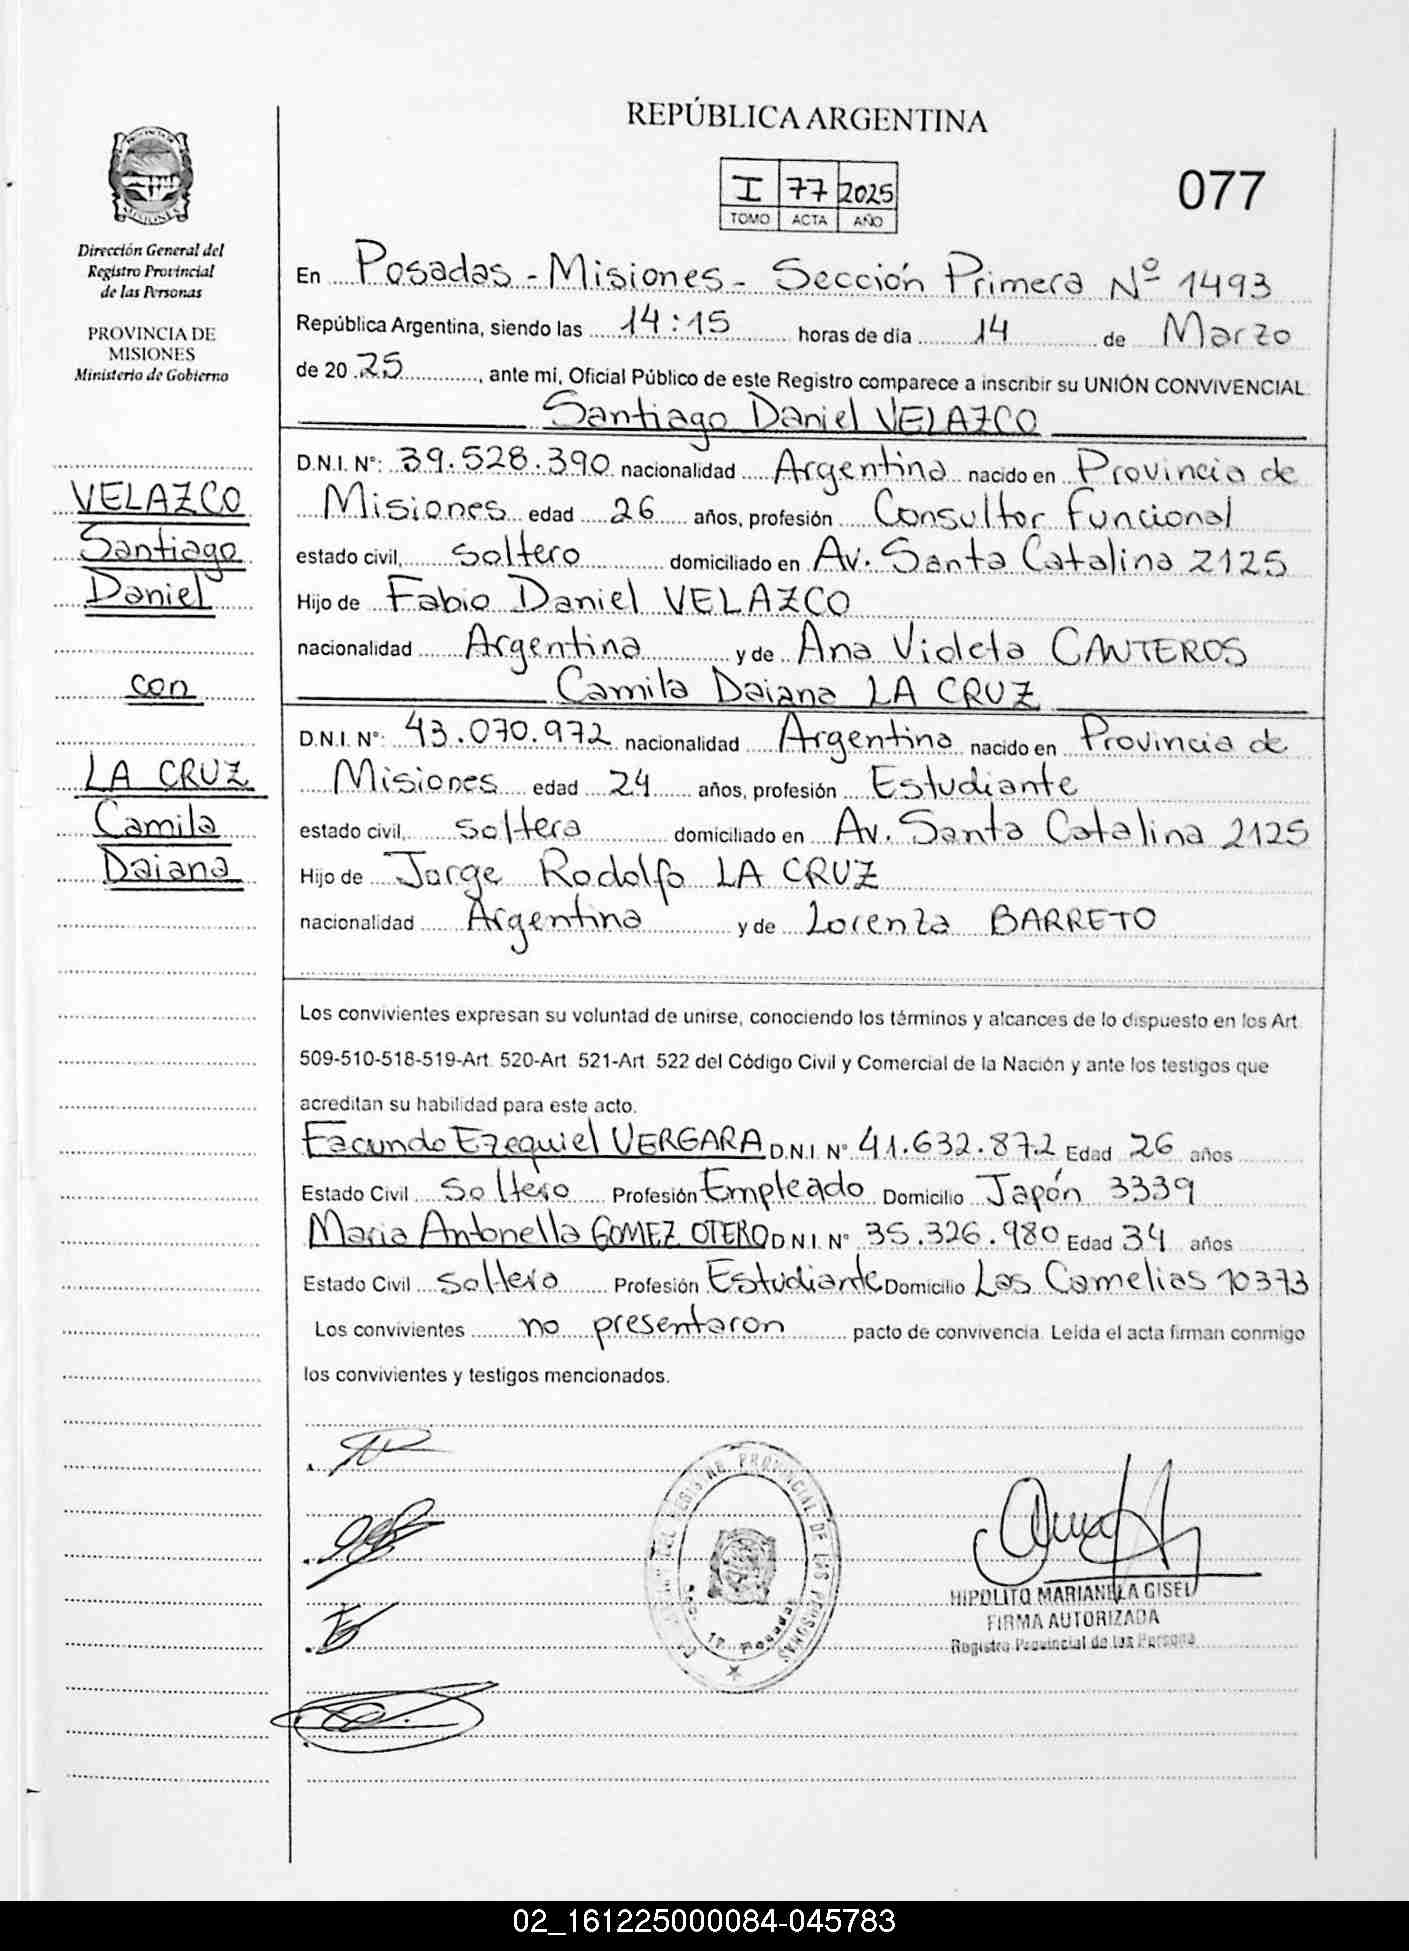 REPÚBLICA ARGENTINA
I 77 2025
TOMO ACTA AÑO
077
Dirección General del
Registro Provincial
de las Personas
PROVINCIA DE
MISIONES
Ministerio de Gobierno
VELAZCO
Santiago
Daniel
con
LA CRUZ
Camila
Daiana
En Posadas - Misiones - Sección Primera Nº 1493
República Argentina, siendo las 14:15 horas de día 14 de Marzo
de 20 25, ante mi, Oficial Público de este Registro comparece a inscribir su UNIÓN CONVIVENCIAL
Santiago Daniel VELAZCO
D.N.I. Nº: 39.528.390 nacionalidad Argentina nacido en Provincia de
Misiones edad 26 años, profesión Consultor Funcional
estado civil, soltero domiciliado en Av. Santa Catalina 2125
Hijo de Fabio Daniel VELAZCO
nacionalidad Argentina y de Ana Violeta CANTEROS
Camila Daiana LA CRUZ
D.N.I. Nº: 43.070.972 nacionalidad Argentina nacido en Provincia de
Misiones edad 24 años, profesión Estudiante
estado civil, soltera domiciliado en Av. Santa Catalina 2125
Hijo de Jorge Rodolfo LA CRUZ
nacionalidad Argentina y de Lorenza BARRETO
Los convivientes expresan su voluntad de unirse, conociendo los términos y alcances de lo dispuesto en los Art.
509-510-518-519-Art. 520-Art. 521-Art. 522 del Código Civil y Comercial de la Nación y ante los testigos que
acreditan su habilidad para este acto.
Facundo Ezequiel VERGARA D.N.I. Nº 41.632.872 Edad 26 años
Estado Civil Soltero Profesión Empleado Domicilio Japón 3339
Maria Antonella GOMEZ OTERO D.N.I. Nº 35.326.980 Edad 34 años
Estado Civil Soltera Profesión Estudiante Domicilio Las Camelias 10373
Los convivientes no presentaron pacto de convivencia. Leida el acta firman conmigo
los convivientes y testigos mencionados.
REGISTRO PROVINCIAL DE LAS PERSONAS
HIPOLITO MARIANELA GISEL
FIRMA AUTORIZADA
Registro Provincial de las Persona
02_161225000084-045783